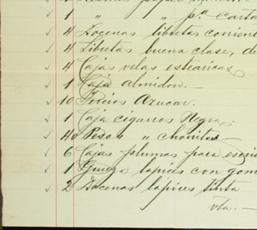 1 " " pa carta
4 Docenas libretas corrient
4 Libretas buena clase, d
4 Cajas velas estearicas
1 Caja almidon.—
10 Tercios Azucar.
1 Caja cigarros Negra
40 Pesos " chonitos—
6 Cajas plumas para escri
1 Gruesa lapices con gom
2 Docenas lápices tinta
Vta.—